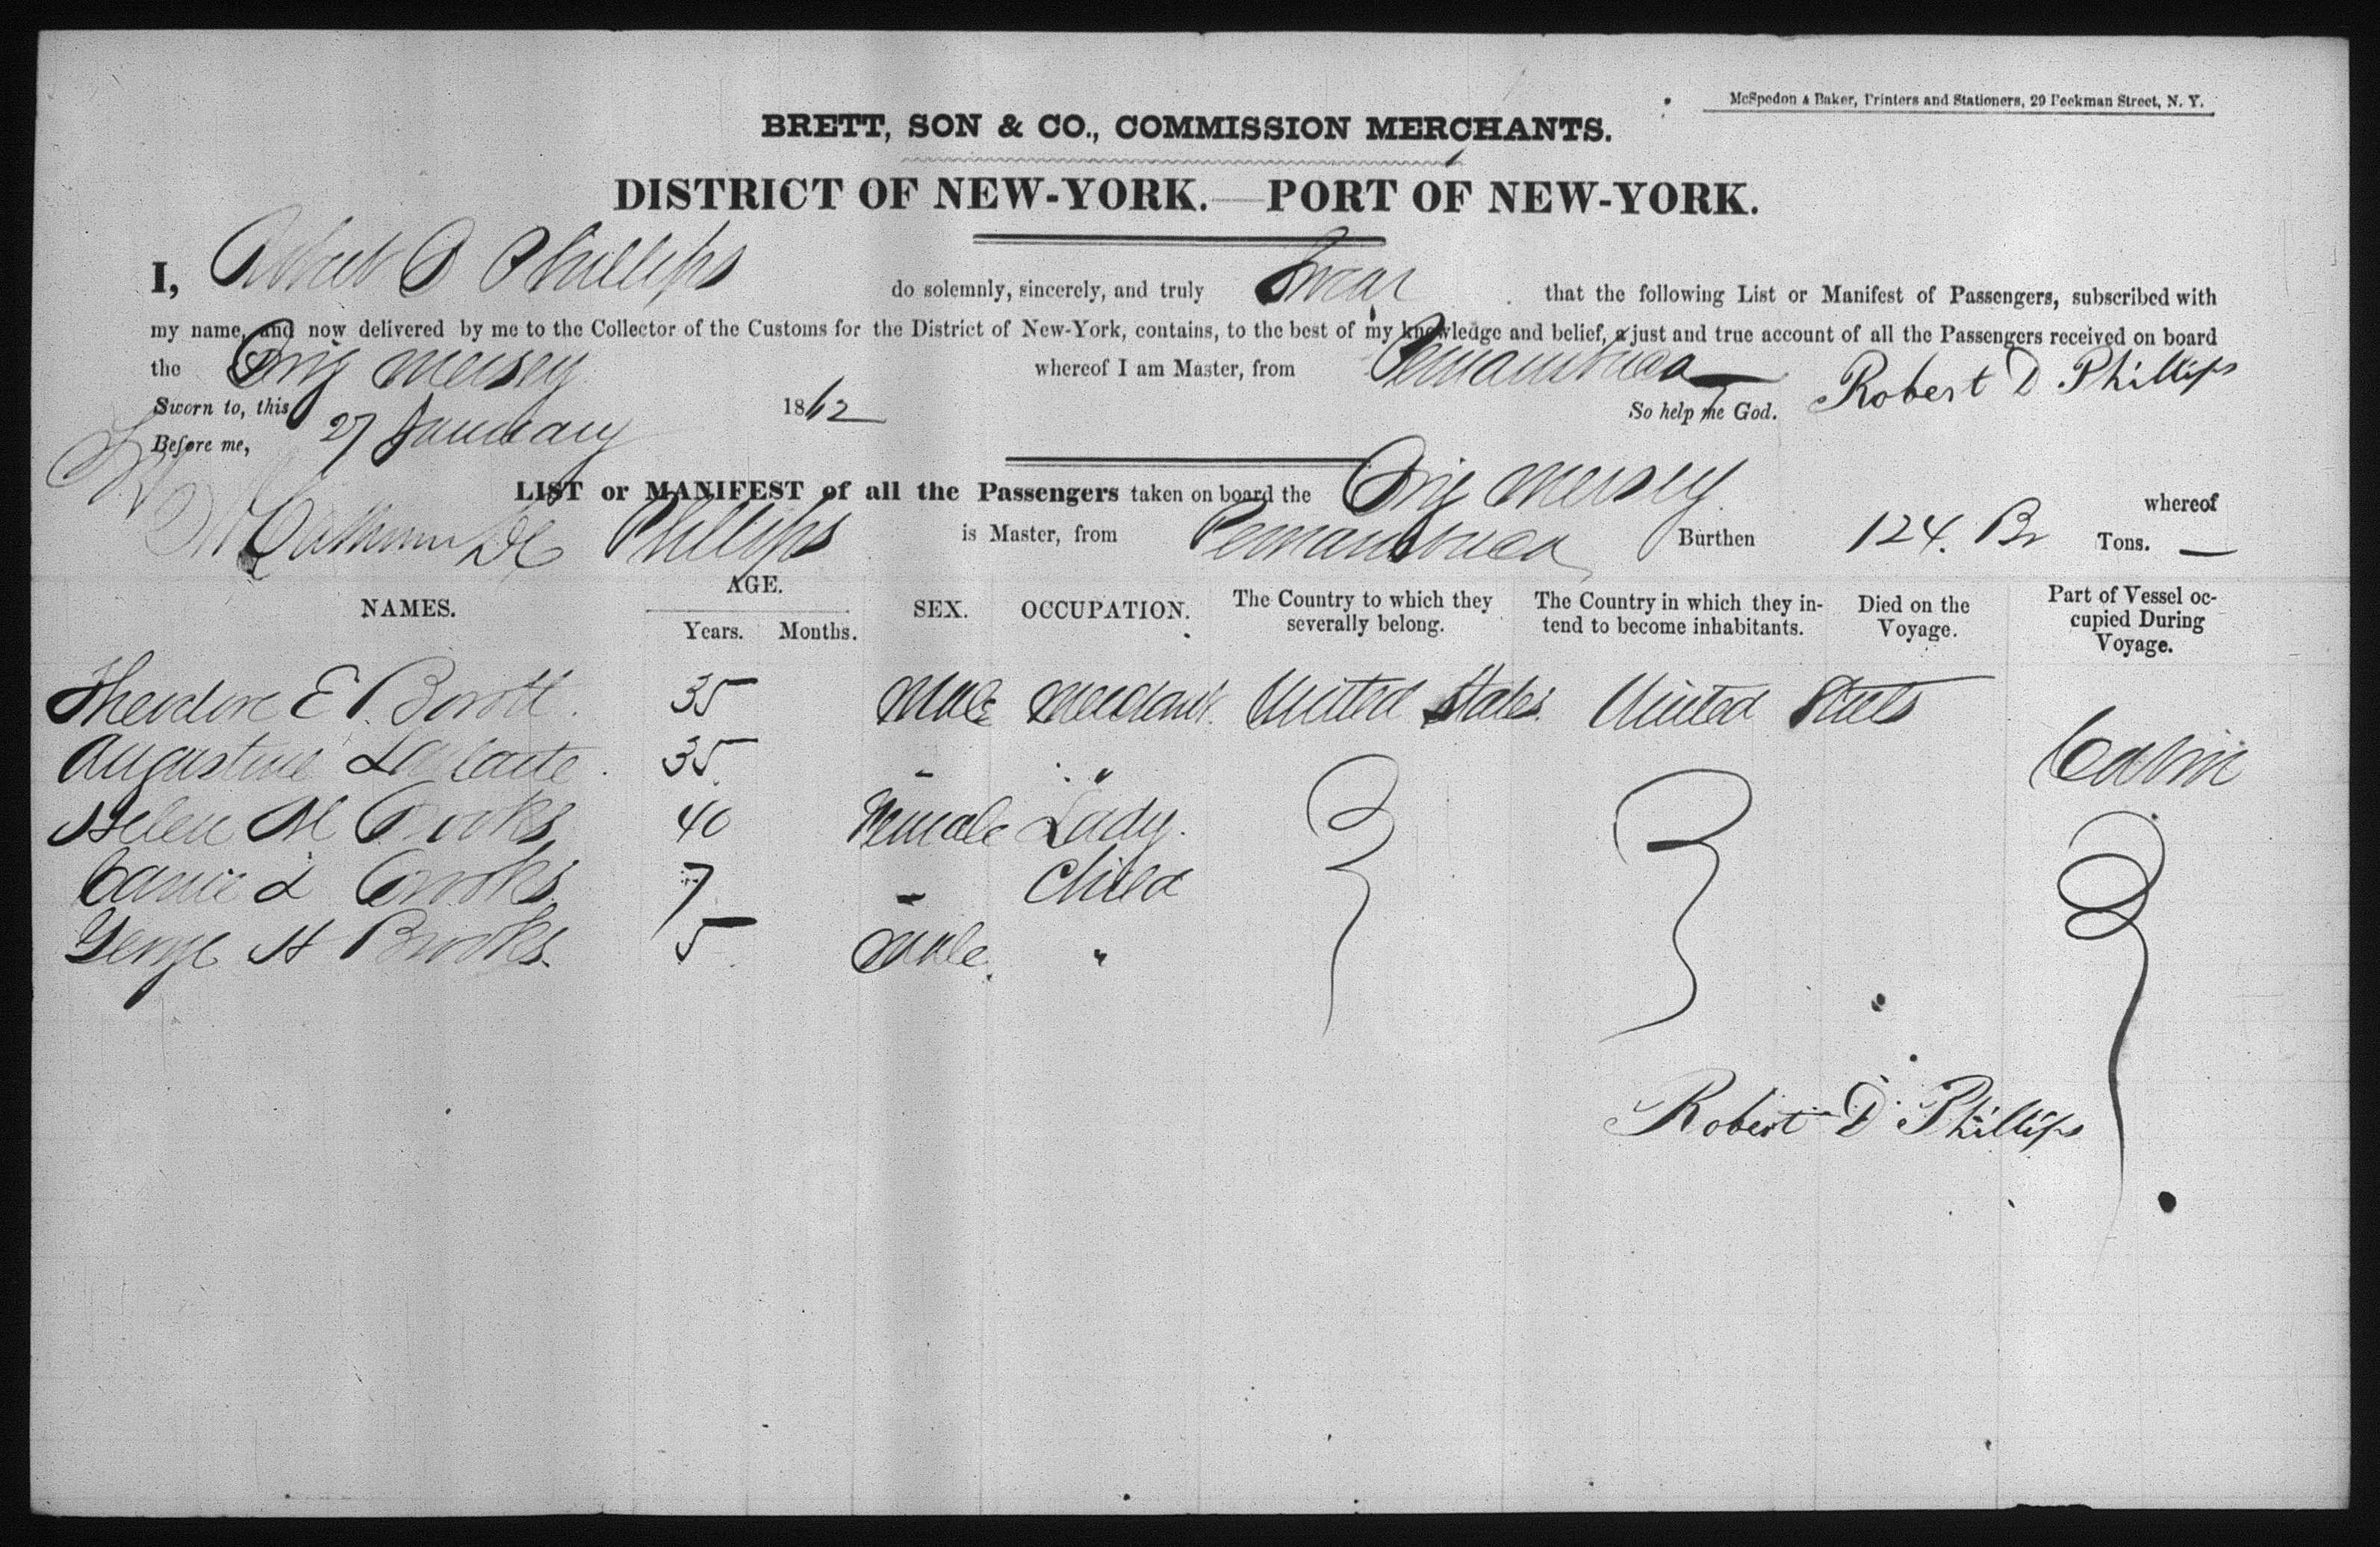 McSpedon & Baker, Printers and Stationers, 29 Beekman Street, N. Y.
BRETT, SON & CO., COMMISSION MERCHANTS.
DISTRICT OF NEW-YORK.—PORT OF NEW-YORK.
I, Robert D Phillips do solemnly, sincerely, and truly Swear that the following List or Manifest of Passengers, subscribed with
my name, and now delivered by me to the Collector of the Customs for the District of New-York, contains, to the best of my knowledge and belief, a just and true account of all the Passengers received on board
the Brig Mersey whereof I am Master, from Pernambuco Robert D Phillips
Sworn to, this 27 January 1862 So help me God.
Before me,
LIST or MANIFEST of all the Passengers taken on board the Brig Mersey whereof
Phillips is Master, from Pernambuco Burthen 124. Br Tons. —
NAMES. AGE. Years. Months. SEX. OCCUPATION. The Country to which they severally belong. The Country in which they intend to become inhabitants. Died on the Voyage. Part of Vessel occupied During Voyage.
Theodore E 35 Male Merchant. United States. United States
Augustine 35 - " Cabin
Helen M Brooks 40 Female Lady.
Carrie L Brooks 7 - Child
George H Brooks. 5 Male. "
Robert D Phillips